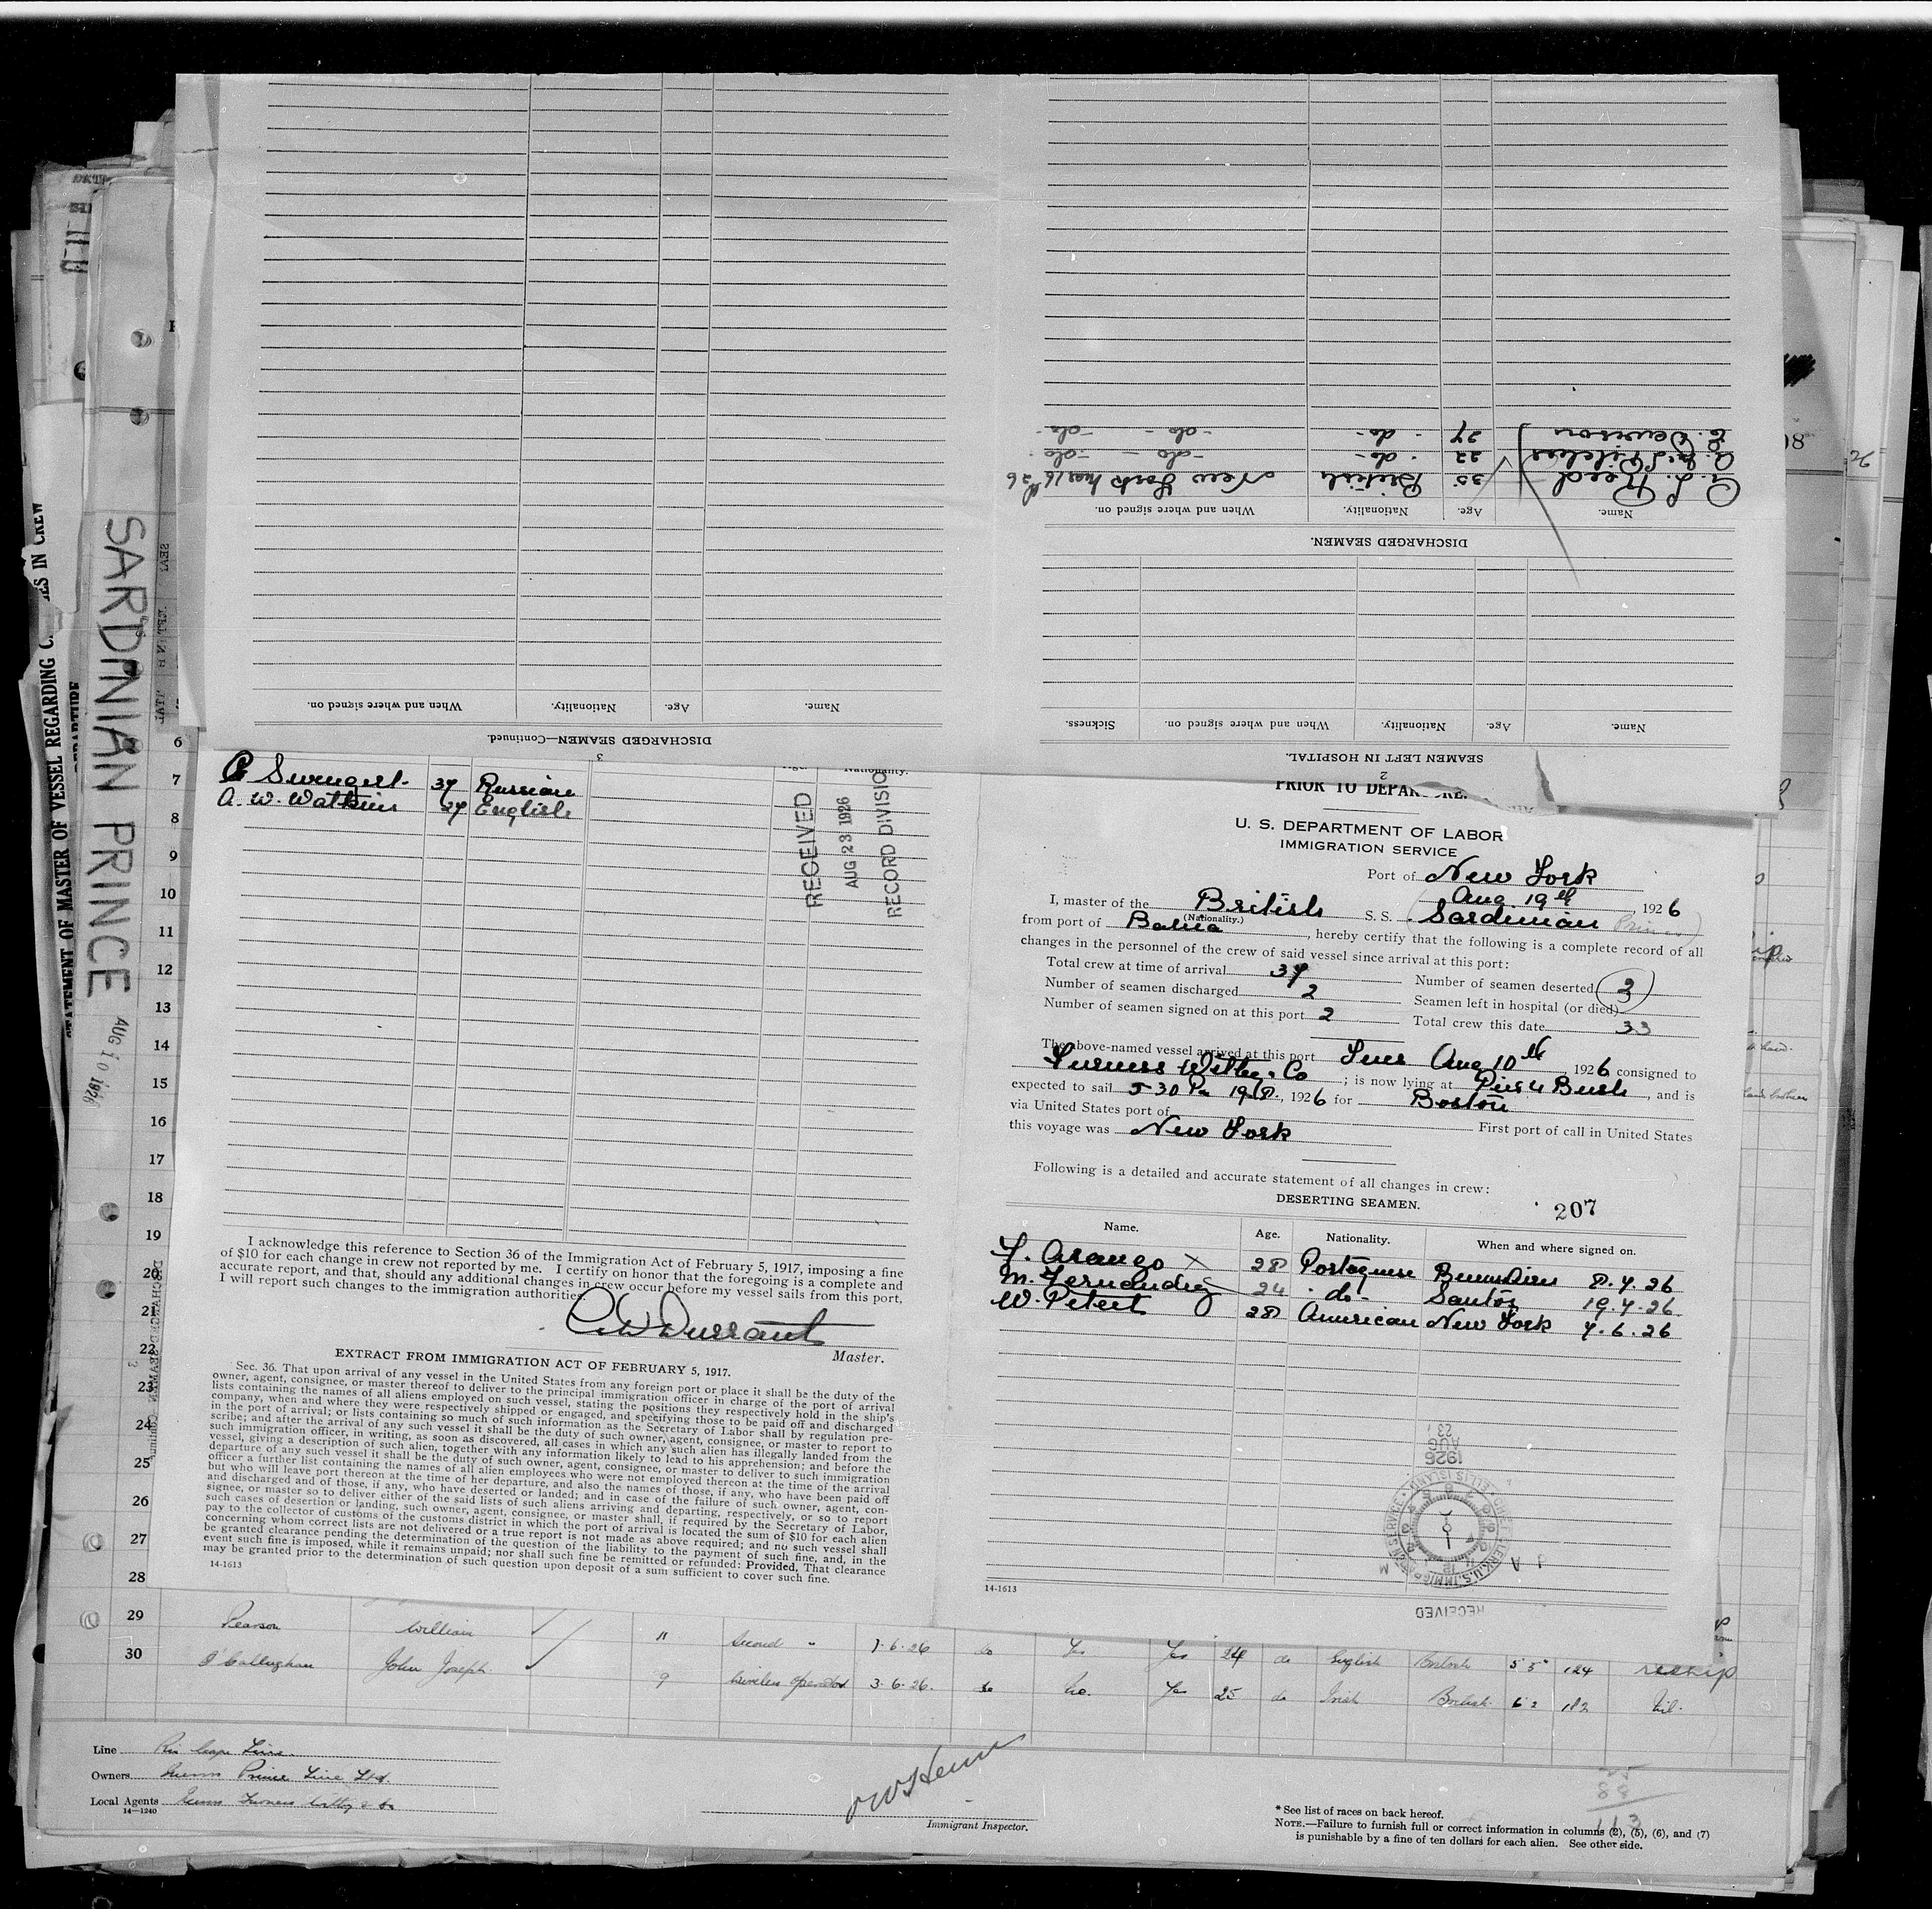 DISCHARGED SEAMEN—Continued.
Name.
Age.
Nationality.
When and where signed on.
3
2
SEAMEN LEFT IN HOSPITAL.
Name.
Age.
Nationality.
When and where signed on.
Sickness.
DISCHARGED SEAMEN.
Name.
Age.
Nationality.
When and where signed on.
A. L. Reed 35 British New York
22 -do- -do- -do-
-do- -do- -do-
STATEMENT OF MASTER OF VESSEL REGARDING
IN CREW
SARDINIAN PRINCE
AUG 10 1926
6
7
8
9
10
11
12
13
14
15
16
17
18
19
20
21
22
23
24
25
26
27
28
37 Russian
A. W. Watkins 27 English
RECEIVED
AUG 23 1926
RECORD DIVISION
I acknowledge this reference to Section 36 of the Immigration Act of February 5, 1917, imposing a fine
of $10 for each change in crew not reported by me. I certify on honor that the foregoing is a complete and
accurate report, and that, should any additional changes in crew occur before my vessel sails from this port,
I will report such changes to the immigration authorities.
Durrant
Master.
EXTRACT FROM IMMIGRATION ACT OF FEBRUARY 5, 1917.
Sec. 36. That upon arrival of any vessel in the United States from any foreign port or place it shall be the duty of the
owner, agent, consignee, or master thereof to deliver to the principal immigration officer in charge of the port of arrival
lists containing the names of all aliens employed on such vessel, stating the positions they respectively hold in the ship's
company, when and where they were respectively shipped or engaged, and specifying those to be paid off and discharged
in the port of arrival; or lists containing so much of such information as the Secretary of Labor shall by regulation pre-
scribe; and after the arrival of any such vessel it shall be the duty of such owner, agent, consignee, or master to report to
such immigration officer, in writing, as soon as discovered, all cases in which any such alien has illegally landed from the
vessel, giving a description of such alien, together with any information likely to lead to his apprehension; and before the
departure of any such vessel it shall be the duty of such owner, agent, consignee, or master to deliver to such immigration
officer a further list containing the names of all alien employees who were not employed thereon at the time of the arrival
but who will leave port thereon at the time of her departure, and also the names of those, if any, who have been paid off
and discharged and of those, if any, who have deserted or landed; and in case of the failure of such owner, agent, con-
signee, or master so to deliver either of the said lists of such aliens arriving and departing, respectively, or so to report
such cases of desertion or landing, such owner, agent, consignee, or master shall, if required by the Secretary of Labor,
pay to the collector of customs of the customs district in which the port of arrival is located the sum of $10 for each alien
concerning whom correct lists are not delivered or a true report is not made as above required; and no such vessel shall
be granted clearance pending the determination of the question of the liability to the payment of such fine, and, in the
event such fine is imposed, while it remains unpaid; nor shall such fine be remitted or refunded: Provided, That clearance
may be granted prior to the determination of such question upon deposit of a sum sufficient to cover such fine.
14-1613
PRIOR TO DEPARTURE.
U. S. DEPARTMENT OF LABOR
IMMIGRATION SERVICE
Port of New York
Aug. 19th, 1926
I, master of the British S. S. Sardinian Prince
(Nationality.)
from port of Bahia, hereby certify that the following is a complete record of all
changes in the personnel of the crew of said vessel since arrival at this port:
Total crew at time of arrival 37
Number of seamen deserted 3
Number of seamen discharged 2
Seamen left in hospital (or died)
Number of seamen signed on at this port 2
Total crew this date 33
The above-named vessel arrived at this port Tues Aug 10th 1926 consigned to
Furness Withy & Co; is now lying at Pier 4 Bush, and is
expected to sail 5 30 Pm 19th, 1926 for Boston
via United States port of First port of call in United States
this voyage was New York
Following is a detailed and accurate statement of all changes in crew:
DESERTING SEAMEN.
207
Name. Age. Nationality. When and where signed on.
28 Portoguese Buenos Aires 8.7.26
24 -do- Santos 19.7.26
W. 28 American New York 7.6.26
1926
AUG
23
RECEIVED
14-1613
29 Pearson William 11 Second " 1.6.26 do Yes Yes 24 do English British 5 5 124 reship
30 O'Callaghan John Joseph 9 Wireless operator 3.6.26. do no. Yes 25 do Irish British 6 2 182 Nil.
Line
Owners Prince Line Ltd.
Local Agents Furness Withy & Co
14—1240
Immigrant Inspector.
88
113
* See list of races on back hereof.
NOTE.—Failure to furnish full or correct information in columns (2), (5), (6), and (7)
is punishable by a fine of ten dollars for each alien. See other side.